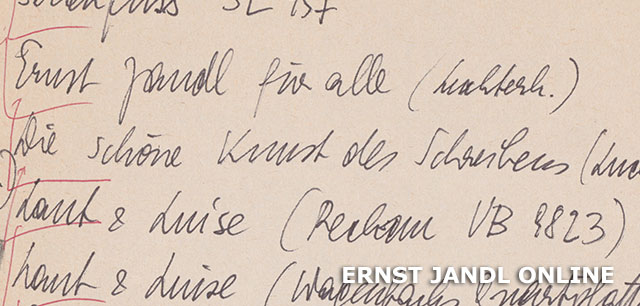 SL 137
Ernst Jandl für alle (Luchterh.)
Die schöne Kunst des Schreibens (Luc
Laut & Luise (Reclam UB 9823)
Laut & Luise (Wagenbach Quartplatt
ERNST JANDL ONLINE